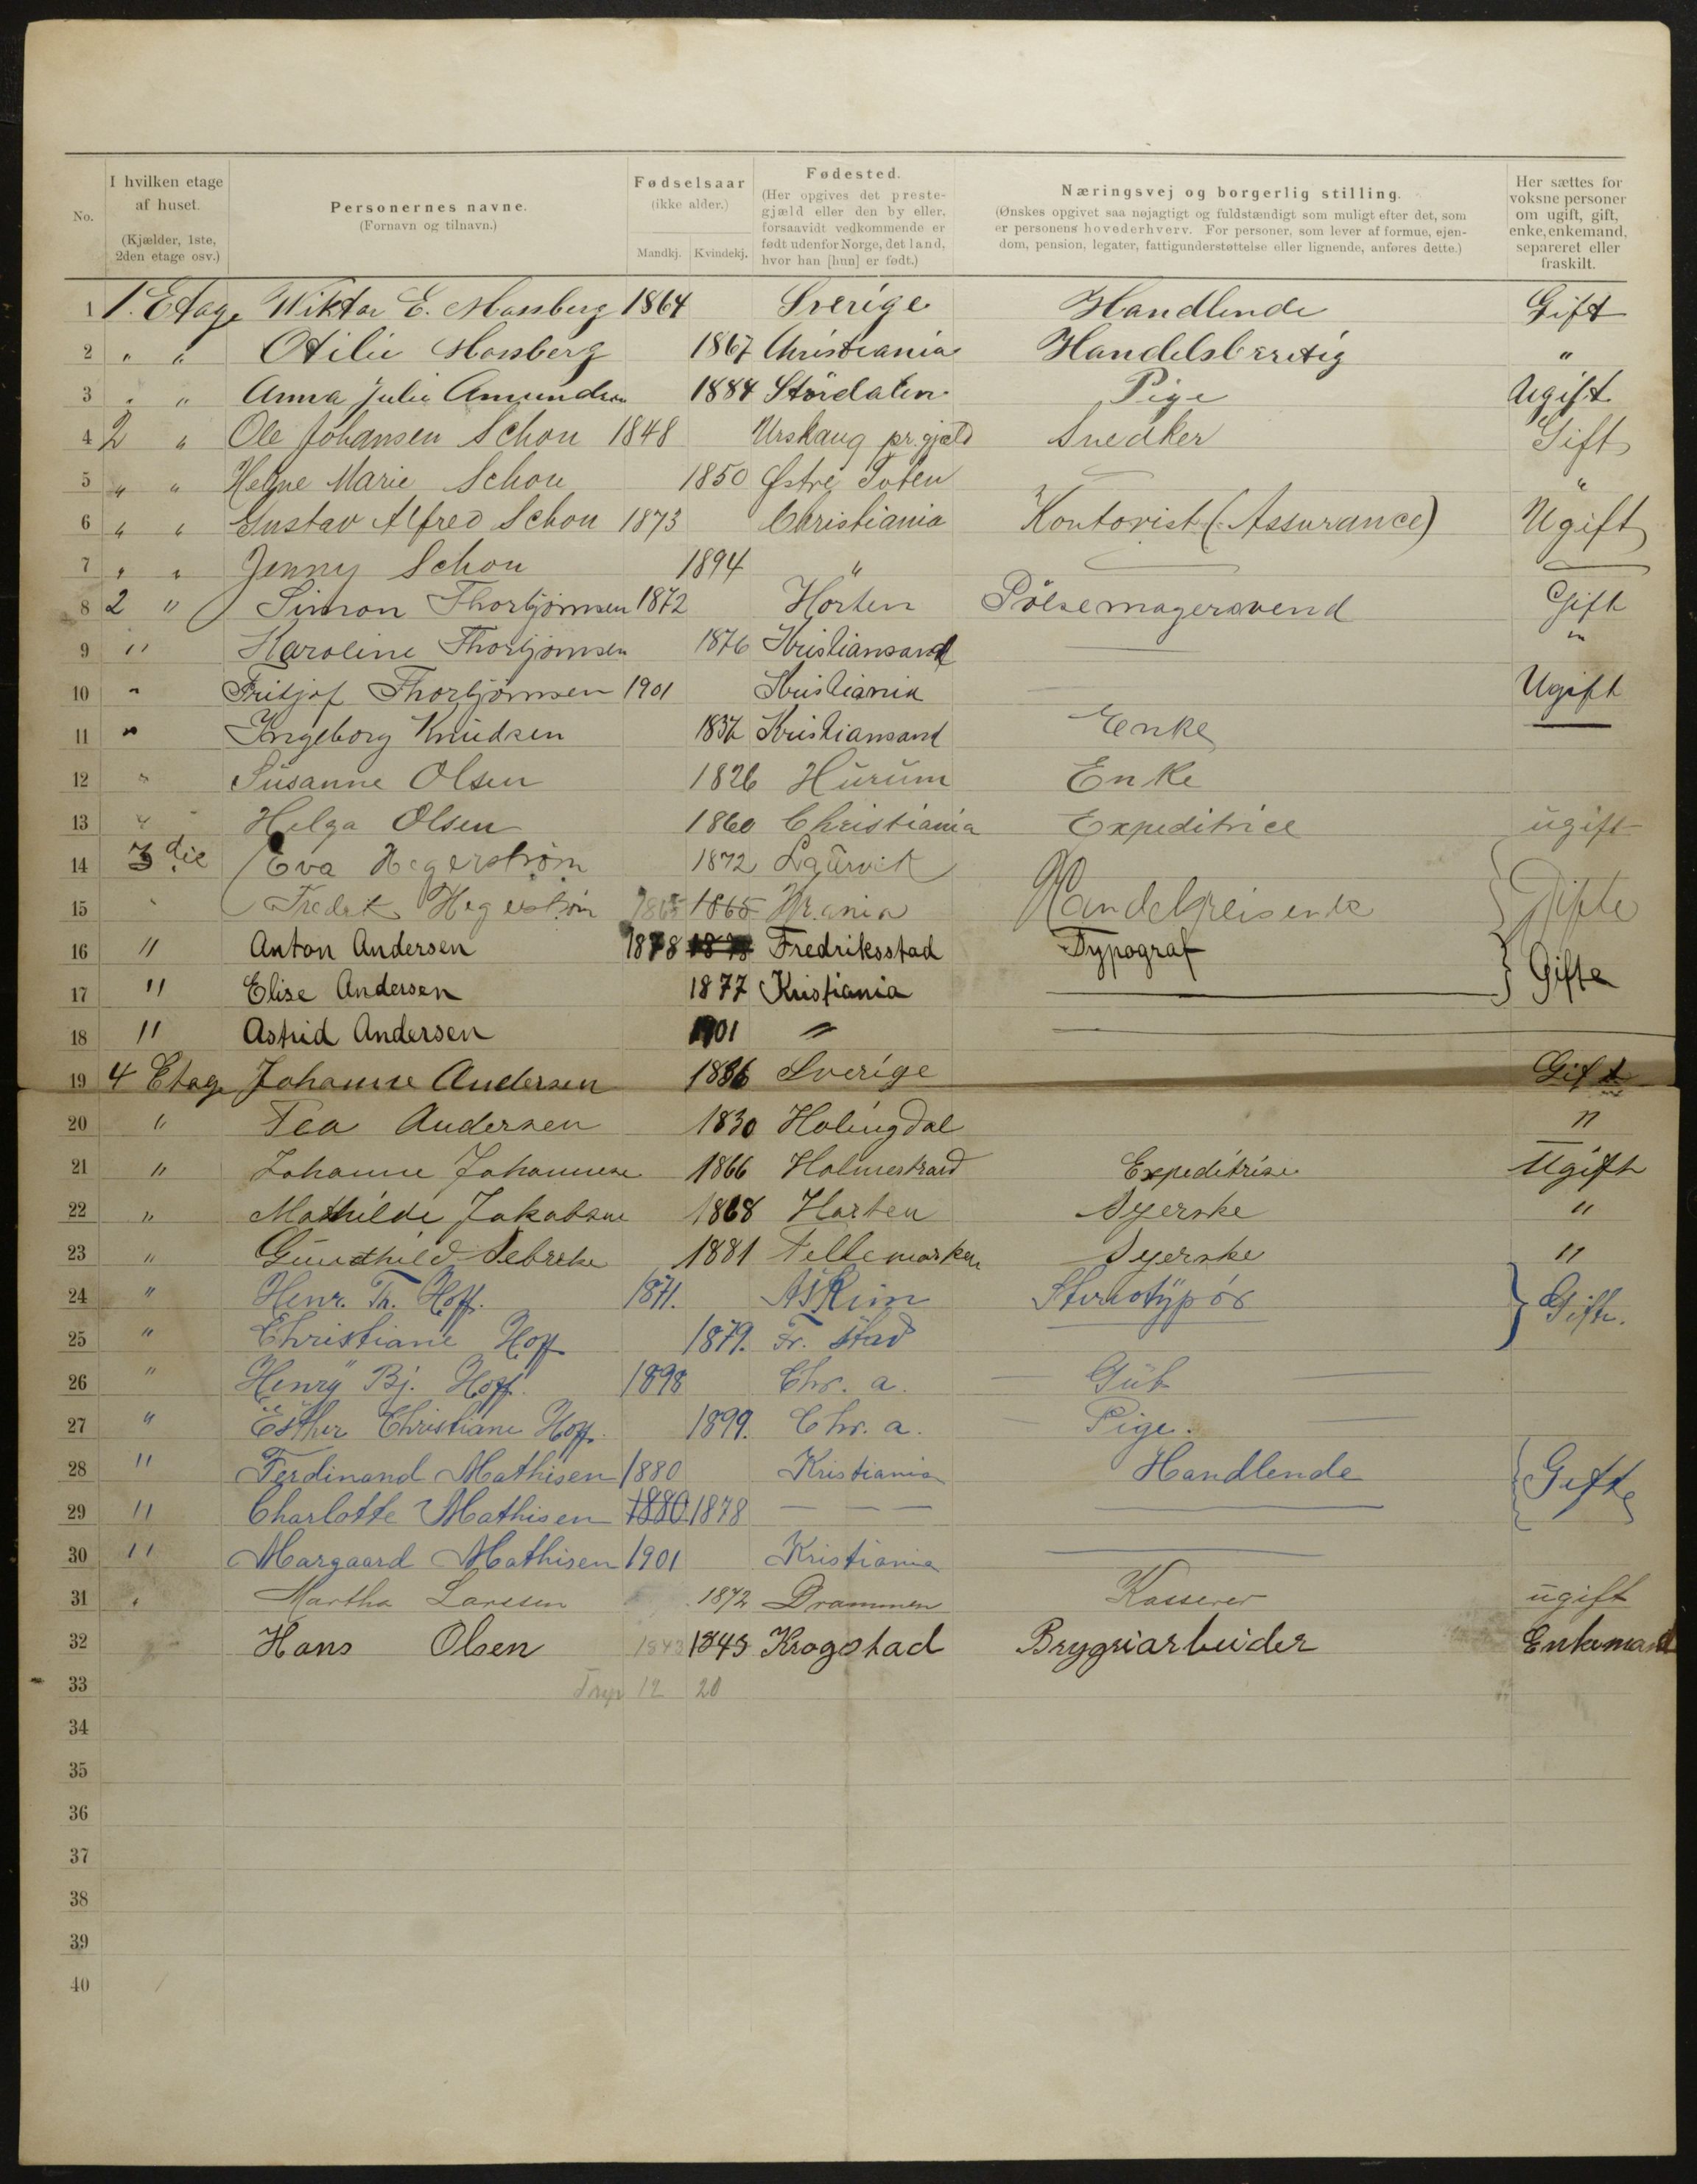 No.
I hvilken etage af huset. (Kjælder, 1ste, 2den etage osv.)
Personernes navne. (Fornavn og tilnavn.)
Fødselsaar (ikke alder.) Mandkj. Kvindekj.
Fødested. (Her opgives det prestegjæld eller den by eller, forsaavidt vedkommende er født udenfor Norge, det land, hvor han [hun] er født.)
Næringsvej og borgerlig stilling. (Ønskes opgivet saa nøjagtigt og fuldstændigt som muligt efter det, som er personens hovederhverv. For personer, som lever af formue, ejendom, pension, legater, fattigunderstøttelse eller lignende, anføres dette.)
Her sættes for voksne personer om ugift, gift, enke, enkemand, separeret eller fraskilt.
1 1. Etage Wiktor E. Mossberg 1864 Sverige Handlende Gift
2 " " Otilie Mossberg 1867 Christiania Handelsberetig "
3 " " Anna Julie Amundsen 1884 Stördalen Pige Ugift
4 2 " Ole Johansen Schou 1848 Urskaug pr.gjæld Snedker Gift
5 " " Helene Marie Schou 1850 Østre Toten "
6 " " Gustav Alfred Schou 1873 Christiania Kontorist (Assurance) Ugift
7 " " Jenny Schou 1894 "
8 2 " Simon Thorbjørnsen 1872 Horten Pölsemagersvend Gift
9 " Karoline Thorbjørnsen 1876 Kristiansand "
10 " Fritjof Thorbjørnsen 1901 Kristiania Ugift
11 " Ingeborg Knudsen 1836 Kristiansand Enke
12 " Susanne Olsen 1826 Hurum Enke
13 " Helga Olsen 1860 Christiania Expeditrice ugift
14 3die Eva Hegerstrøm 1872 Laurvik
15 " Fredrk Hegerstrøm 1865 1865 Kr.ania Handelsreisende Gifte
16 " Anton Andersen 1878 1878 Fredriksstad Typograf
17 " Elise Andersen 1877 Kristiania Gifte
18 " Astrid Andersen 1901 "
19 4 Etage Johanne Andersen 1836 Sverige Gift
20 " Tea Andersen 1830 Holingdal "
21 " Johanne Johannesen 1866 Holmestrand Expeditrise Ugift
22 " Mathilde Jakobsen 1868 Horten Syerske "
23 " Gundhild 1881 Tellemarken Syerske "
24 " Henr. Th. Hoff. 1871. Askim Sterotypør Gifte.
25 " Christiane Hoff 1879. Fr. stad
26 " Henry Bj. Hoff. 1898 Chr. a. — Gut —
27 " Esther Christiane Hoff. 1899. Chr. a. — Pige. —
28 " Ferdinand Mathisen 1880 Kristiania Handlende Gifte
29 " Charlotte Mathisen 1880 1878 — — —
30 " Margaard Mathisen 1901 Kristiania
31 " Martha Larssen 1872 Drammen Kasserer ugift
32 Hans Olsen 1843 1843 Krogstad Bryggriarbeider Enkemand
33 12 20
34
35
36
37
38
39
40